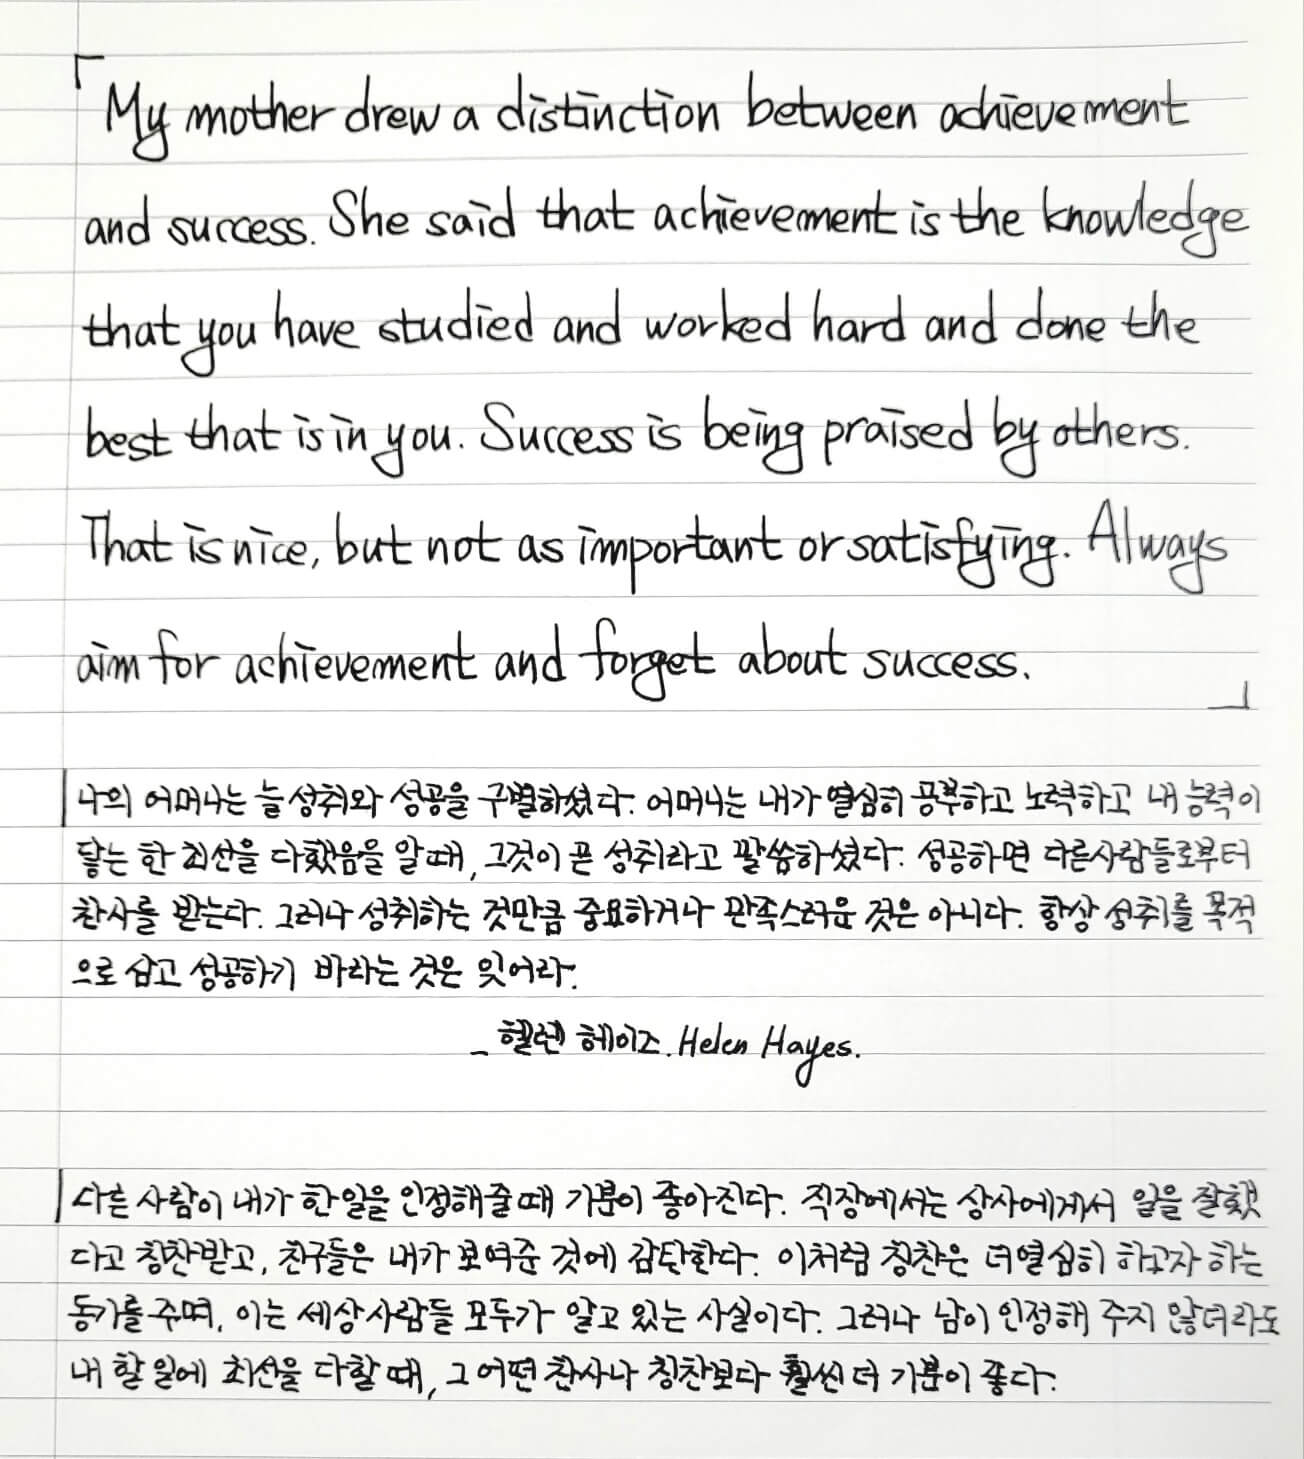 「My mother drew a distinction between achievement
and success. She said that achievement is the knowledge
that you have studied and worked hard and done the
best that is in you. Success is being praised by others.
That is nice, but not as important or satisfying. Always
aim for achievement and forget about success.」
나의 어머니는 늘 성취와 성공을 구별하셨다. 어머니는 내가 열심히 공부하고 노력하고 내 능력이
닿는 한 최선을 다했음을 알 때, 그것이 곧 성취라고 말씀하셨다. 성공하면 다른사람들로부터
찬사를 받는다. 그러나 성취하는 것만큼 중요하거나 만족스러운 것은 아니다. 항상 성취를 목적
으로 삼고 성공하기 바라는 것은 잊어라.
- 헬렌 헤이즈. Helen Hayes.
다른 사람이 내가 한 일을 인정해줄 때 기분이 좋아진다. 직장에서는 상사에게서 일을 잘했
다고 칭찬받고, 친구들은 내가 보여준 것에 감탄한다. 이처럼 칭찬은 더 열심히 하고자 하는
동기를 주며, 이는 세상사람들 모두가 알고 있는 사실이다. 그러나 남이 인정해 주지 않더라도
내 할 일에 최선을 다할 때, 그 어떤 찬사나 칭찬보다 훨씬 더 기분이 좋다.